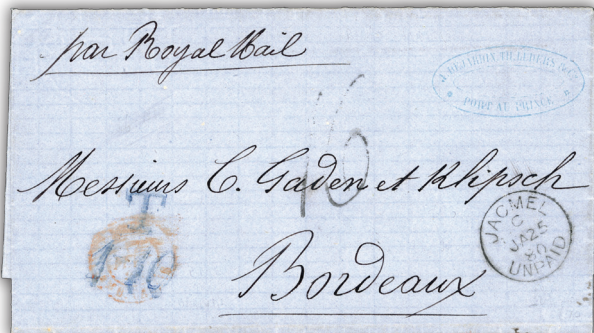 par Royal Mail
PORT AU PRINCE
16
Messieurs C. Gaden et Klipsch
T
JACMEL
C
JA 25
80
UNPAID
Bordeaux